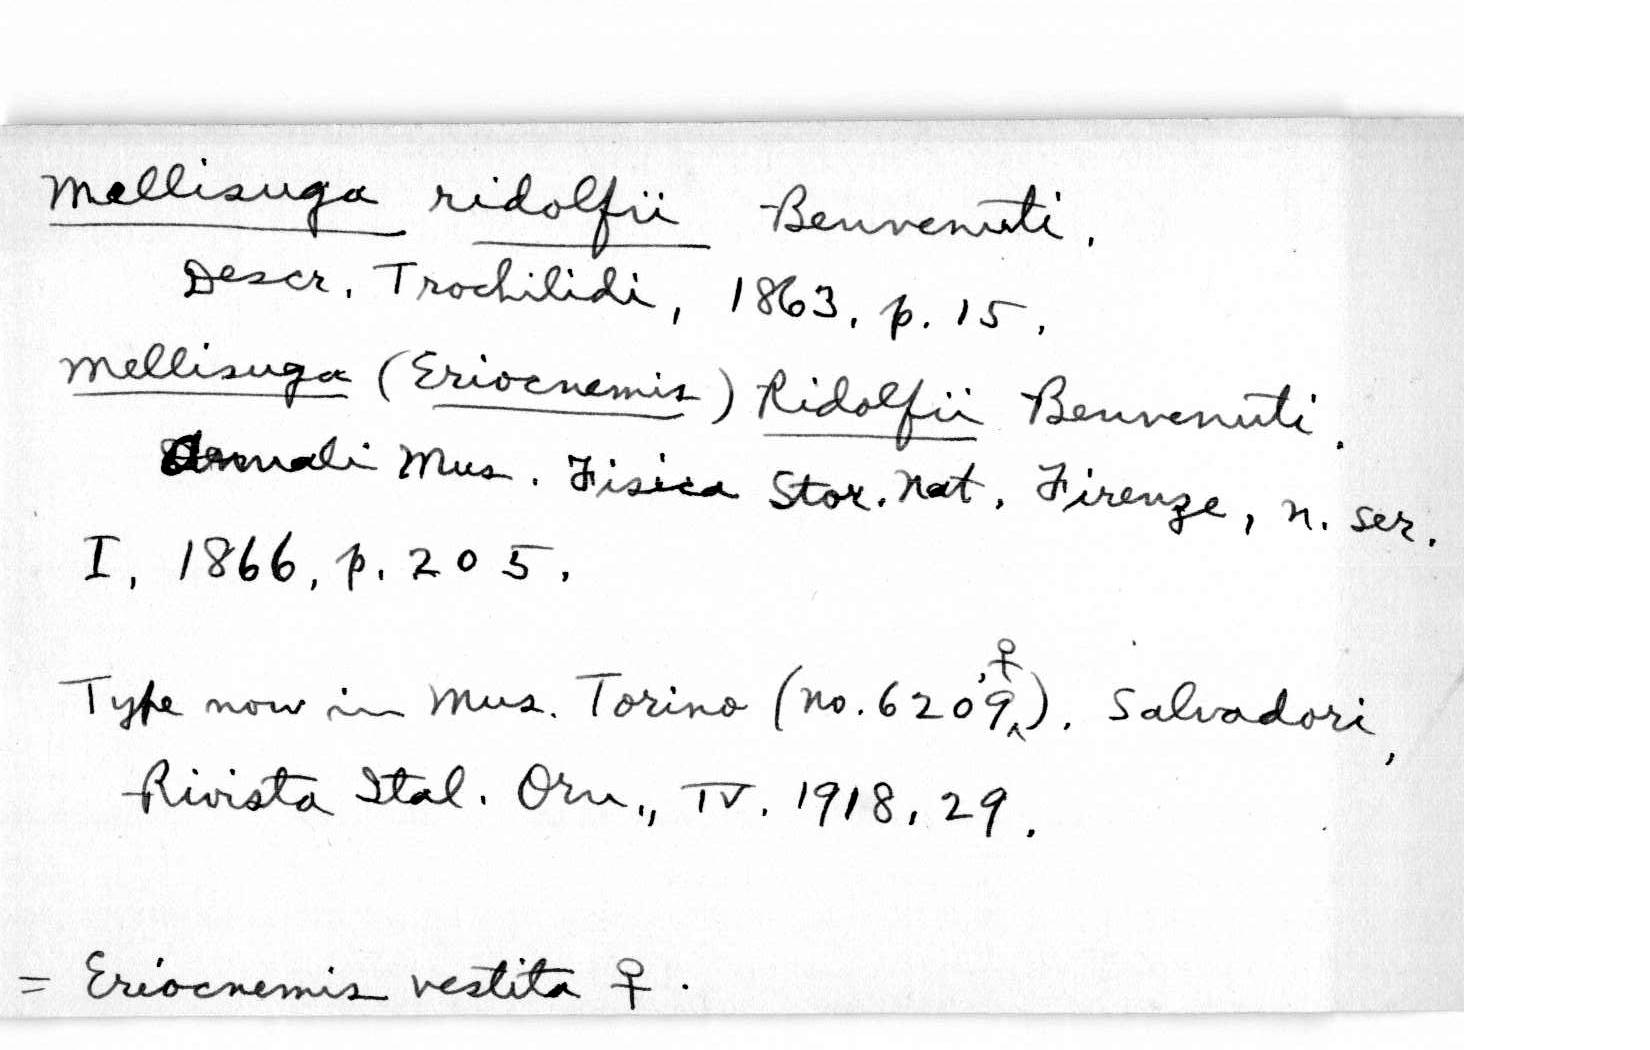 Mellisuga ridolfii Benvenuti.
Descr. Trochilidi, 1863, p. 15.
Mellisuga (Eriocnemis) Ridolfii Benvenuti.
Annali Mus. Fisica Stor. Nat. Firenze, n. ser.
I, 1866, p. 205.
Type now in Mus. Torino (no. 6209, ♀). Salvadori,
Rivista Ital. Orn., IV. 1918, 29.
= Eriocnemis vestita ♀.